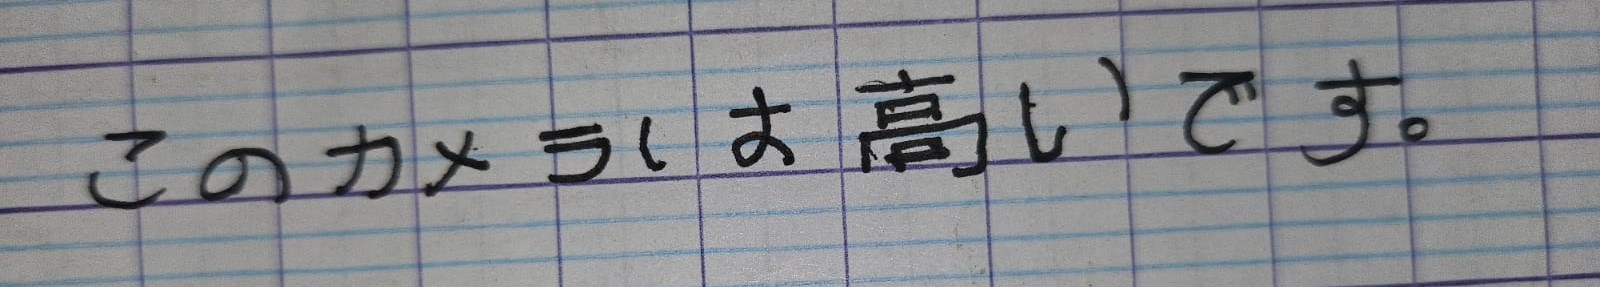 このカメラは高いです。